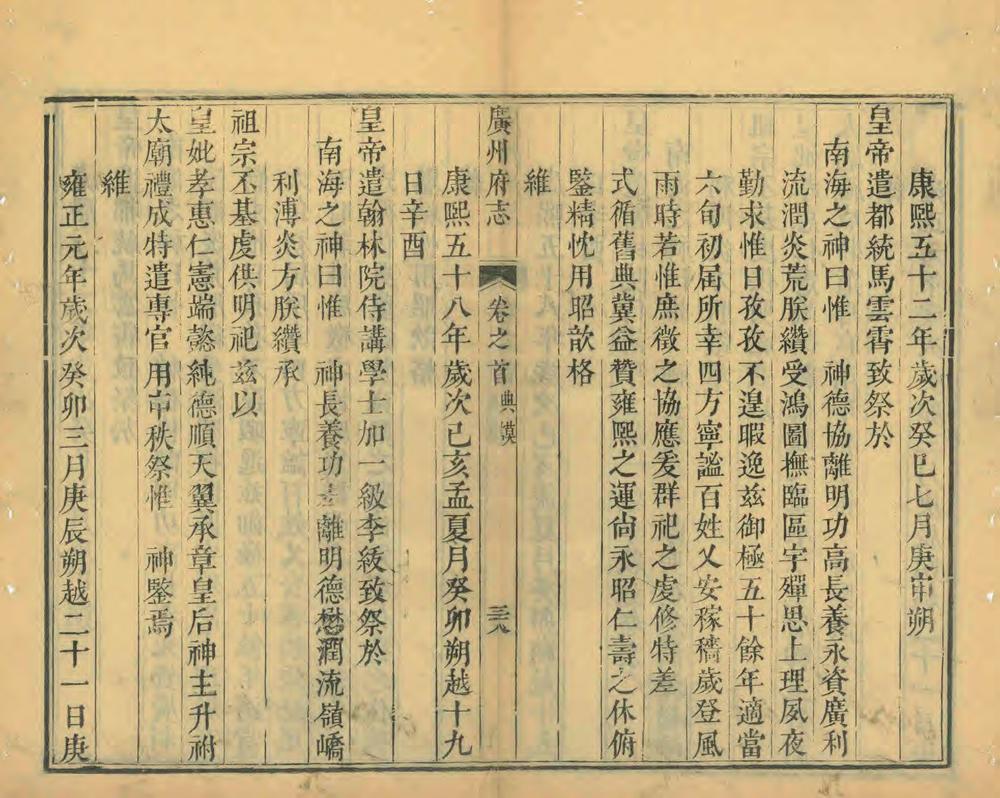 康熙五十二年歲次癸巳七月庚申朔
皇帝遣都統馬雲霄致祭於
南海之神曰惟　神德協離明功高長養永資廣利
流潤炎荒朕纘受鴻圖撫臨區宇殫思上理夙夜
勤求惟日孜孜不遑暇逸茲御極五十餘年適當
六旬初屆所幸四方寧謐百姓乂安稼穡歲登風
雨時若惟庶徵之協應爰群祀之虔修特差
式循舊典冀益贊雍熙之運尙永昭仁壽之休俯
鑒精忱用昭歆格
維
廣州府志　卷之首　典謨　三八
康熙五十八年歲次己亥孟夏月癸卯朔越十九
日辛酉
皇帝遣翰林院侍講學士加一級李紱致祭於
南海之神曰惟　神長養功離明德懋潤流嶺嶠
利溥炎方朕纘承
祖宗丕基虔供明祀茲以
皇妣孝惠仁憲端懿純德順天翼承章皇后神主升祔
太廟禮成特遣專官用申秩祭惟　神鑒焉
維
雍正元年歲次癸卯三月庚辰朔越二十一日庚